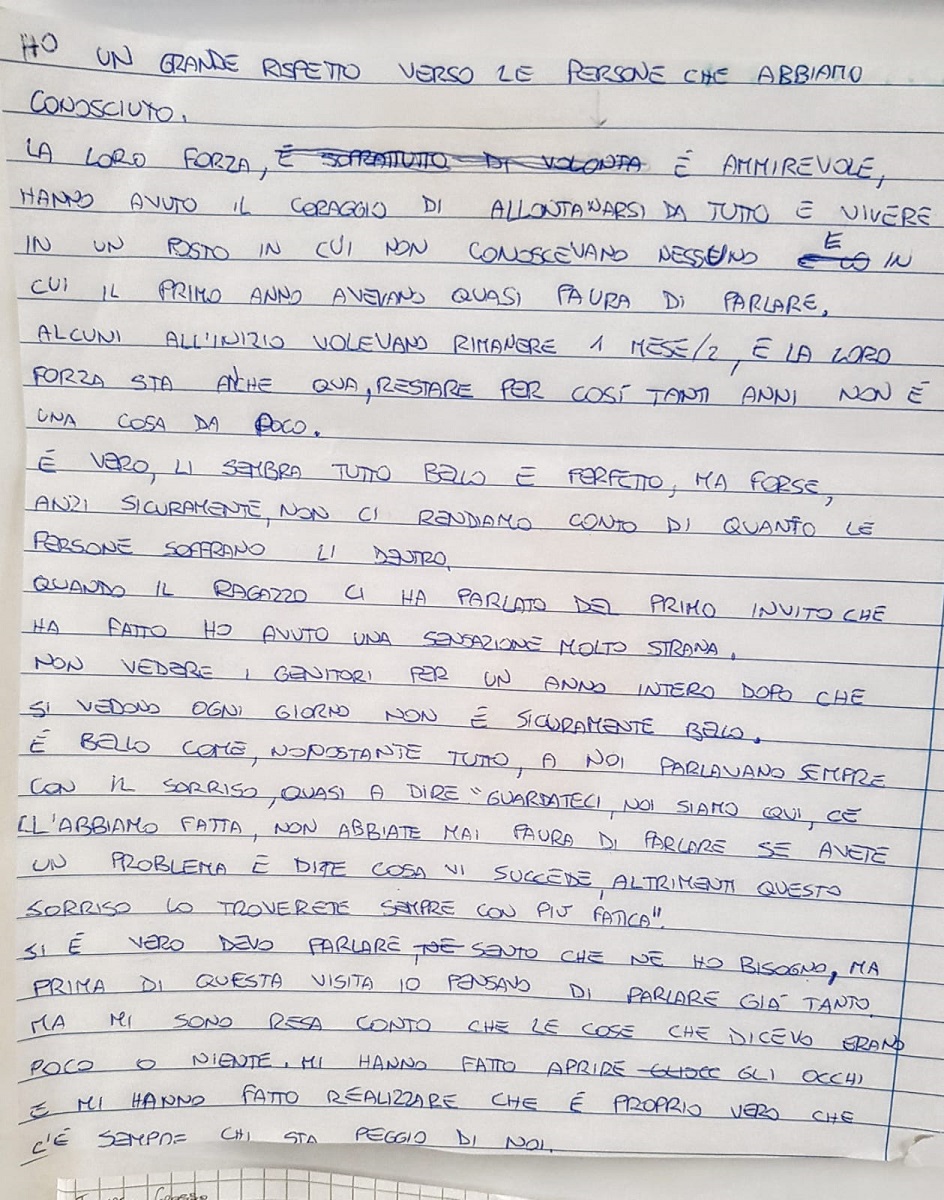 HO UN GRANDE RISPETTO VERSO LE PERSONE CHE ABBIAMO
CONOSCIUTO.
LA LORO FORZA, È SOPRATTUTTO DI VOLONTA È AMMIREVOLE,
HANNO AVUTO IL CORAGGIO DI ALLONTANARSI DA TUTTO E VIVERE
IN UN POSTO IN CUI NON CONOSCEVANO NESSUNO E IN
CUI IL PRIMO ANNO AVEVANO QUASI PAURA DI PARLARE.
ALCUNI ALL'INIZIO VOLEVANO RIMANERE 1 MESE/2, E LA LORO
FORZA STA ANCHE QUA, RESTARE PER COSÍ TANTI ANNI NON È
UNA COSA DA POCO.
È VERO, LI SEMBRA TUTTO BELLO E PERFETTO, MA FORSE,
ANZI SICURAMENTE, NON CI RENDIAMO CONTO DI QUANTO LE
PERSONE SOFFRANO LI DENTRO.
QUANDO IL RAGAZZO CI HA PARLATO DEL PRIMO INVITO CHE
HA FATTO HO AVUTO UNA SENSAZIONE MOLTO STRANA.
NON VEDERE I GENITORI PER UN ANNO INTERO DOPO CHE
SI VEDONO OGNI GIORNO NON È SICURAMENTE BELLO.
È BELLO COME, NONOSTANTE TUTTO, A NOI PARLAVANO SEMPRE
CON IL SORRISO, QUASI A DIRE "GUARDATECI, NOI SIAMO QUI, CE
LL'ABBIAMO FATTA, NON ABBIATE MAI PAURA DI PARLARE SE AVETE
UN PROBLEMA E DITE COSA VI SUCCEDE, ALTRIMENTI QUESTO
SORRISO LO TROVERETE SEMPRE CON PIÙ FATICA".
SI È VERO DEVO PARLARE, NE SENTO CHE NE HO BISOGNO, MA
PRIMA DI QUESTA VISITA IO PENSAVO DI PARLARE GIÀ TANTO.
MA MI SONO RESA CONTO CHE LE COSE CHE DICEVO ERANO
POCO O NIENTE. MI HANNO FATTO APRIRE GLI OCCHI
E MI HANNO FATTO REALIZZARE CHE È PROPRIO VERO CHE
C'È SEMPRE CHI STA PEGGIO DI NOI.